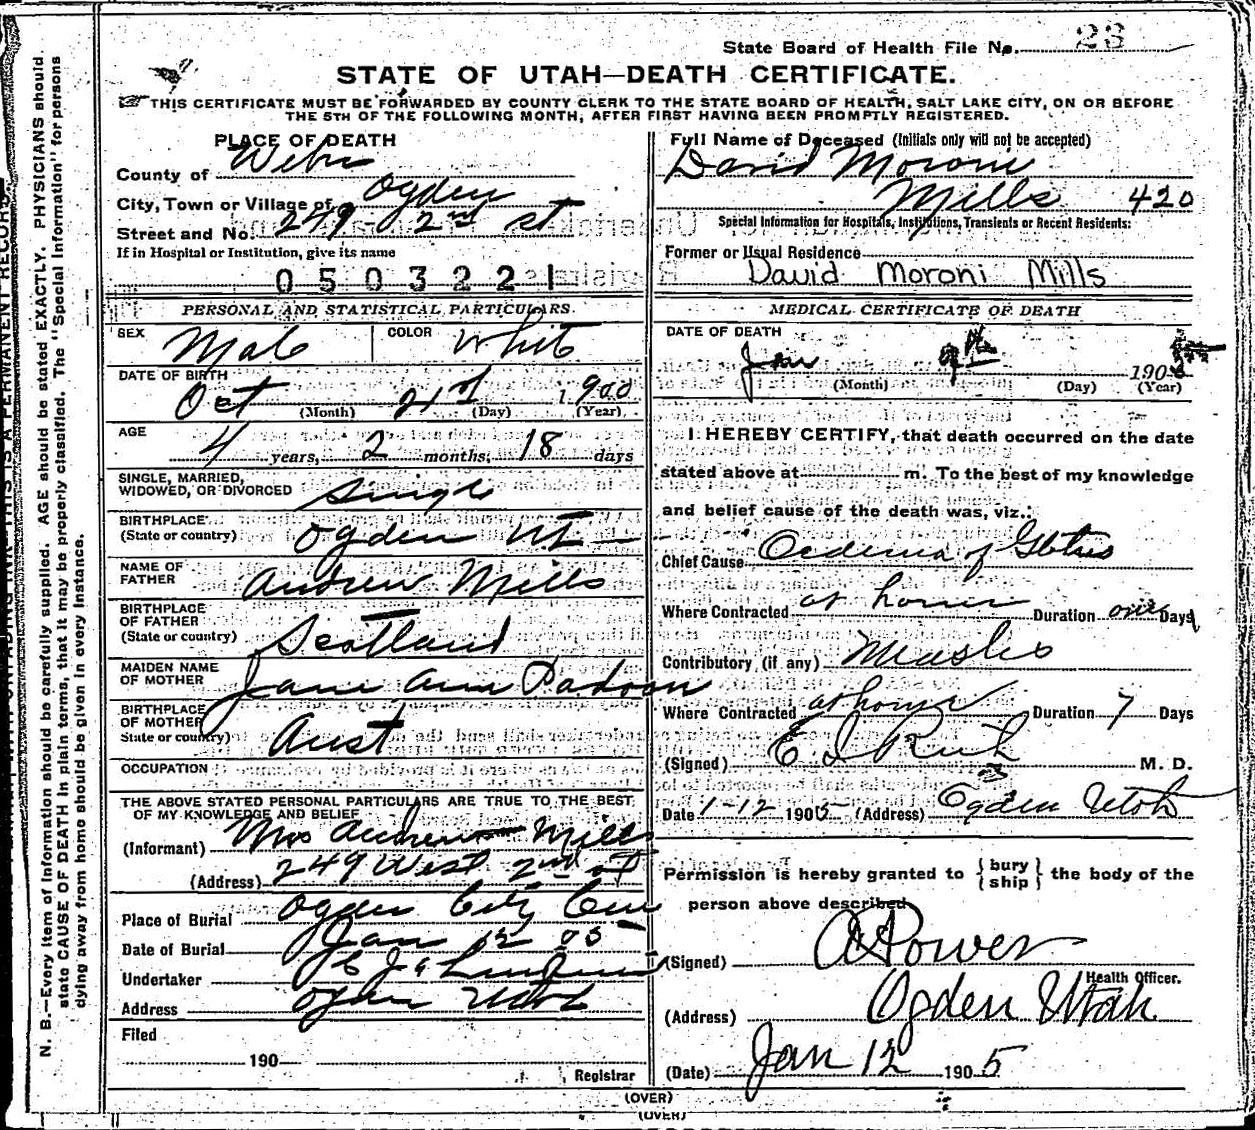 State Board of Health File No. 23
STATE OF UTAH—DEATH CERTIFICATE.
THIS CERTIFICATE MUST BE FORWARDED BY COUNTY CLERK TO THE STATE BOARD OF HEALTH, SALT LAKE CITY, ON OR BEFORE
THE 5TH OF THE FOLLOWING MONTH, AFTER FIRST HAVING BEEN PROMPTLY REGISTERED.
PLACE OF DEATH
County of Weber
City, Town or Village of Ogden
Street and No. 249 2nd st
If in Hospital or Institution, give its name
0503221
PERSONAL AND STATISTICAL PARTICULARS.
SEX Male COLOR White
DATE OF BIRTH
Oct 21st 1900
(Month) (Day) (Year)
AGE
4 years, 2 months, 18 days
SINGLE, MARRIED,
WIDOWED, OR DIVORCED Single
BIRTHPLACE
(State or country) Ogden Ut
NAME OF
FATHER Andrew Mills
BIRTHPLACE
OF FATHER
(State or country) Scotland
MAIDEN NAME
OF MOTHER Jane Ann
BIRTHPLACE
OF MOTHER
State or country) Aust
OCCUPATION
THE ABOVE STATED PERSONAL PARTICULARS ARE TRUE TO THE BEST
OF MY KNOWLEDGE AND BELIEF
(Informant) Mrs Andrew Mills
(Address) 249 West 2nd st
Place of Burial Ogden City Cem
Date of Burial Jan 12 05
Undertaker
Address Ogden Utah
Filed
190
Registrar
Full Name of Deceased (Initials only will not be accepted)
David Moroni
Mills 420
Special Information for Hospitals, Institutions, Transients or Recent Residents:
Former or Usual Residence
David Moroni Mills
MEDICAL CERTIFICATE OF DEATH
DATE OF DEATH
Jan 9th 190
(Month) (Day) (Year)
I HEREBY CERTIFY, that death occurred on the date
stated above at m. To the best of my knowledge
and belief cause of the death was, viz.:
Chief Cause Oedema of
Where Contracted at home Duration one Days
Contributory (if any) Measles
Where Contracted at home Duration 7 Days
(Signed) E. I. M. D.
Date 1-12 1905 (Address) Ogden Utah
Permission is hereby granted to { bury
ship } the body of the
person above described
(Signed) A Power
Health Officer.
(Address) Ogden Utah
(Date) Jan 12 1905
(OVER)
(OVER)
N. B.—Every item of information should be carefully supplied. AGE should be stated EXACTLY. PHYSICIANS should
state CAUSE OF DEATH in plain terms, that it may be properly classified. The "Special Information" for persons
dying away from home should be given in every instance.